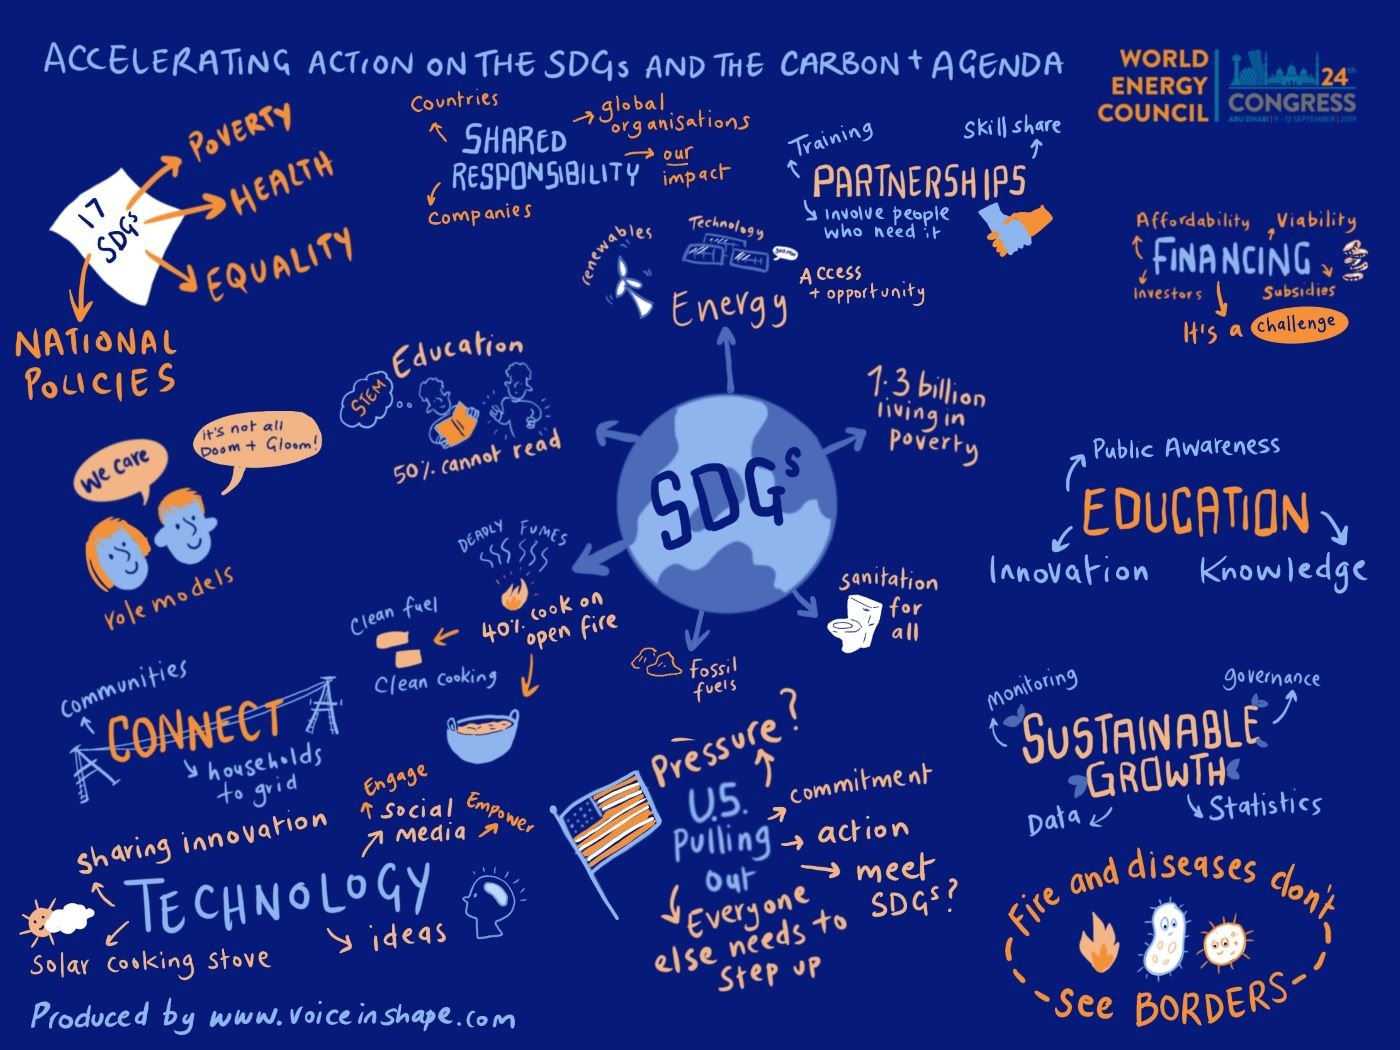 ACCELERATING ACTION ON THE SDGs AND THE CARBON + AGENDA
WORLD
ENERGY
COUNCIL
24th
CONGRESS
ABU DHABI | 9 - 12 SEPTEMBER | 2019
17
SDGs
POVERTY
HEALTH
EQUALITY
NATIONAL
POLICIES
Countries
global
organisations
SHARED
RESPONSIBILITY
our
impact
Companies
Training
Skill share
PARTNERSHIPS
Involve people
who need it
Affordability
Viability
FINANCING
Investors
Subsidies
It's a challenge
renewables
Technology
Access
+ opportunity
Energy
Education
STEM
50% cannot read
1.3 billion
living in
poverty
SDGs
we care
it's not all
Doom + Gloom!
role models
Public Awareness
EDUCATION
Innovation
Knowledge
DEADLY FUMES
40% cook on
open fire
Clean fuel
Clean cooking
sanitation
for
all
Fossil
fuels
communities
CONNECT
households
to grid
monitoring
governance
SUSTAINABLE
GROWTH
Data
Statistics
Pressure?
U.S.
Pulling
out
commitment
action
meet
SDGs?
Everyone
else needs to
step up
Engage
Social
media
Empower
sharing innovation
TECHNOLOGY
ideas
Solar cooking stove
Fire and diseases don't
see BORDERS
Produced by www.voiceinshape.com